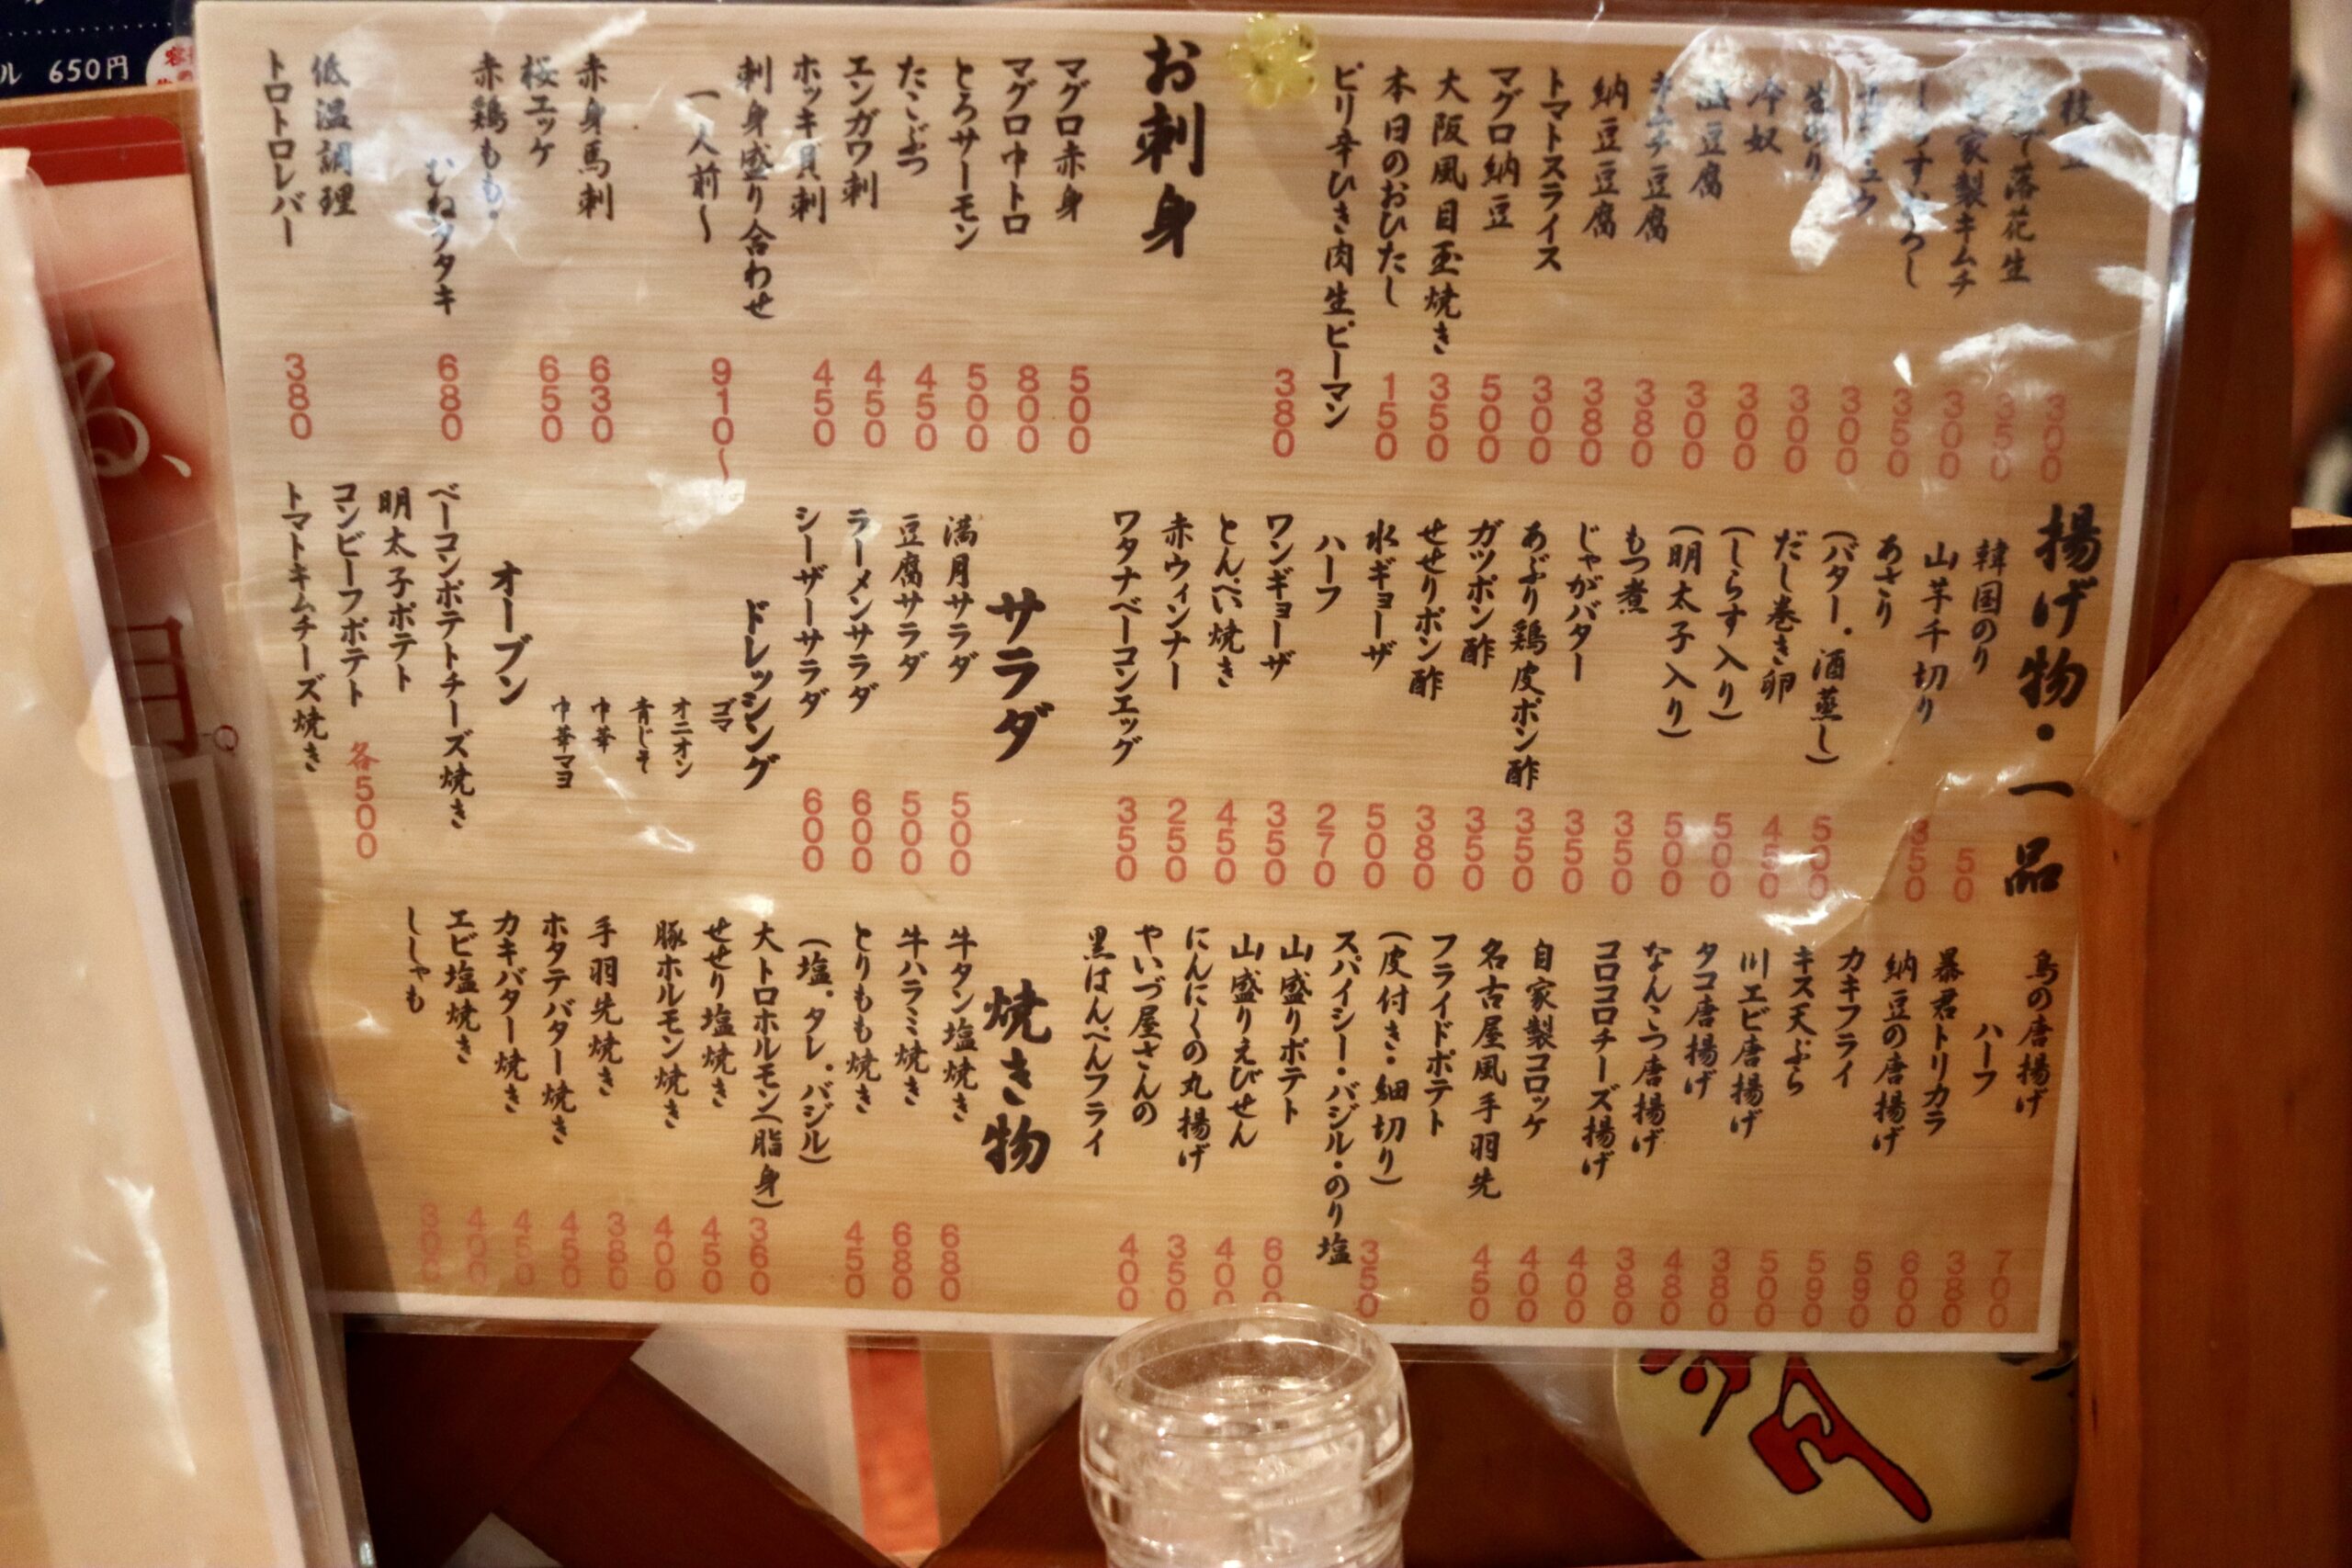 落花生
家製キムチ
冷奴
豆腐
キムチ豆腐
納豆豆腐
トマトスライス
マグロ納豆
大阪風目玉焼き
本日のおひたし
ピリ辛ひき肉生ピーマン
300
350
300
350
300
300
300
300
380
380
300
500
350
150
380
お刺身
マグロ赤身
マグロ中トロ
とろサーモン
たこぶつ
エンガワ刺
ホッキ貝刺
刺身盛り合わせ
一人前〜
赤身馬刺
桜エッケ
赤鶏もも・
むねタタキ
低温調理
トロトロレバー
500
800
500
450
450
450
910〜
630
650
680
380
揚げ物・一品
韓国のり
山芋千切り
あさり
(バター・酒蒸し)
だし巻き卵
(しらす入り)
(明太子入り)
もつ煮
じゃがバター
あぶり鶏皮ポン酢
ガツポン酢
せせりポン酢
水ギョーザ
ハーフ
ワンギョーザ
とんぺい焼き
赤ウィンナー
ワタナベーコンエッグ
50
350
500
450
500
500
350
350
350
350
380
500
270
350
450
250
350
サラダ
満月サラダ
豆腐サラダ
ラーメンサラダ
シーザーサラダ
500
500
600
600
ドレッシング
ゴマ
オニオン
青じそ
中華
中華マヨ
オーブン
ベーコンポテトチーズ焼き
明太子ポテト
コンビーフポテト
トマトキムチーズ焼き
各500
鳥の唐揚げ
ハーフ
暴君トリカラ
納豆の唐揚げ
カキフライ
キス天ぷら
川エビ唐揚げ
タコ唐揚げ
なんこつ唐揚げ
コロコロチーズ揚げ
自家製コロッケ
名古屋風手羽先
フライドポテト
(皮付き・細切り)
スパイシー・バジル・のり塩
山盛りポテト
山盛りえびせん
にんにくの丸揚げ
やいづ屋さんの
黒はんぺんフライ
700
380
600
590
590
500
380
480
380
400
400
450
350
600
400
350
400
焼き物
牛タン塩焼き
牛ハラミ焼き
とりもも焼き
(塩・タレ・バジル)
大トロホルモン(脂身)
せせり塩焼き
豚ホルモン焼き
手羽先焼き
ホタテバター焼き
カキバター焼き
エビ塩焼き
ししゃも
680
680
450
360
450
400
380
450
450
400
300
ル 650円